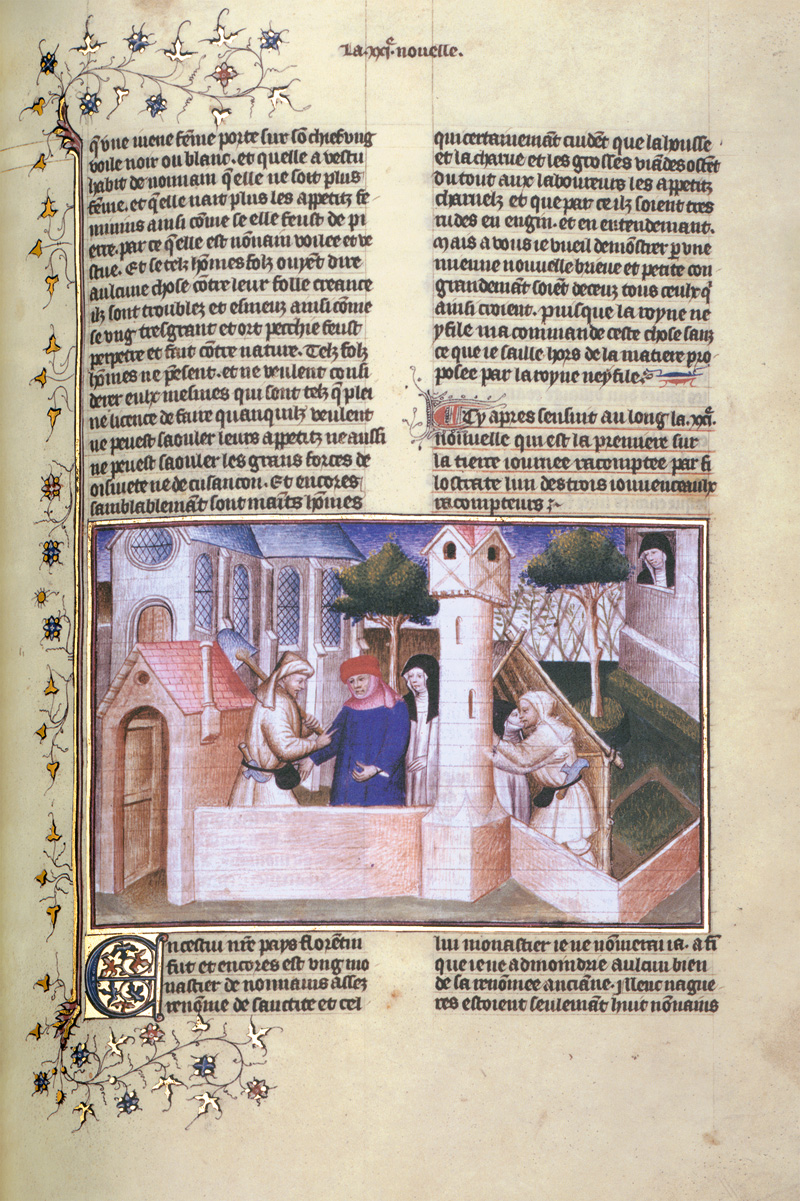 La xxi.e nouelle.
q̄ vne ieune fēme porte sur sō chief vng
voile noir ou blanc. et quelle a vestu
habit de nonnain q̄ elle ne soit plus
fēme. et quelle nait plus les appetiz fe
minins ainsi cōme se elle feust de pi
erre. par ce q̄ elle est nōnain voilee et ve
stue. Et se telz hōmes folz ouyēt dire
aulcune chose cōtre leur folle creance
ilz sont troublez et esmeuz ainsi cōme
se vng tresgrant et ort pechie feust
perpetre et fait cōtre nature. Telz folz
hōmes ne pēsent. et ne veulent consi
derer eulx mesmes qui sont telz q̄ plei
ne licence de faire quanquilz veulent
ne peuest saouler leurs appetitz ne aussi
ne peuest saouler les grans forces de
oisiuete ne de cusancon. Et encores
samblablemāt sont maīts hōmes
qui certainemāt cuidēt que la housse
et la charue et les grosses viādes ostēt
du tout aux laboureurs les appetitz
charnelz et que par ce ilz soient tres
rudes en engin. et en entendement.
Mais a vous ie vueil demōstrer p̄ vne
mienne nouuelle brieue et petite con
grandemāt soiēt deceuz tous ceulx q̄
ainsi croient. puisque la royne ne
yfile ma commande ceste chose sanz
ce que ie saille hors de la matiere pro
posee par la royne neyfile.
Cy apres sensuit au long la. xxi.e
nouuelle qui est la premiere sur
la tierce iournee racomptee par fi
lostrate lun des trois iouuenceaulx
racompteurs
En cestui nr̄e pays florentin
fut et encores est vng mo
nastier de nonnains assez
renōme de sanctite et cel
lui monastier ie ne nōmerai ia. a fī
que ie ne admoindrie aulcun bien
de sa renōmee anciāne. Illenc nague
res estoient seulemāt huit nōnains